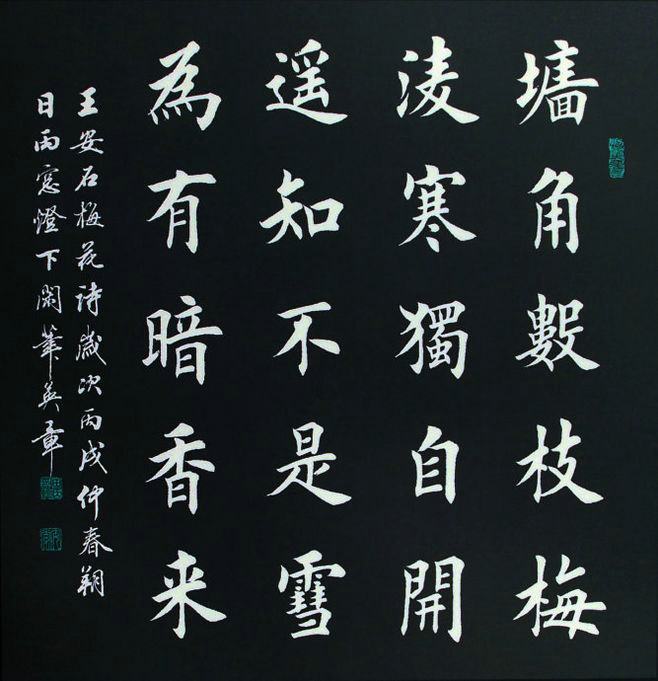 墙角數枝梅
淩寒獨自開
遥知不是雪
為有暗香来
王安石梅花詩歲次丙戌仲春朔
日雨窓燈下閑筆英章